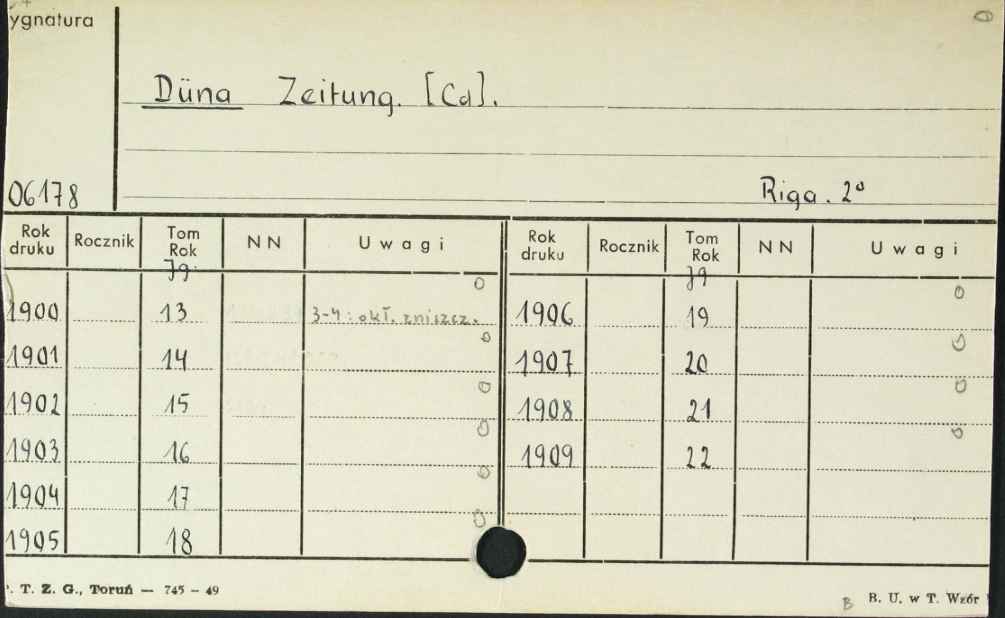 ygnatura
Düna Zeitung. [Cd].
06178
Riga. 2°
Rok druku Rocznik Tom Rok NN Uwagi Rok druku Rocznik Tom Rok NN Uwagi
Jg. Jg
1900 13 3-4: okł. zniszcz. 1906 19
1901 14 1907 20
1902 15 1908 21
1903 16 1909 22
1904 17
1905 18
T. Z. G., Toruń — 745 - 49
B B. U. w T. Wzór